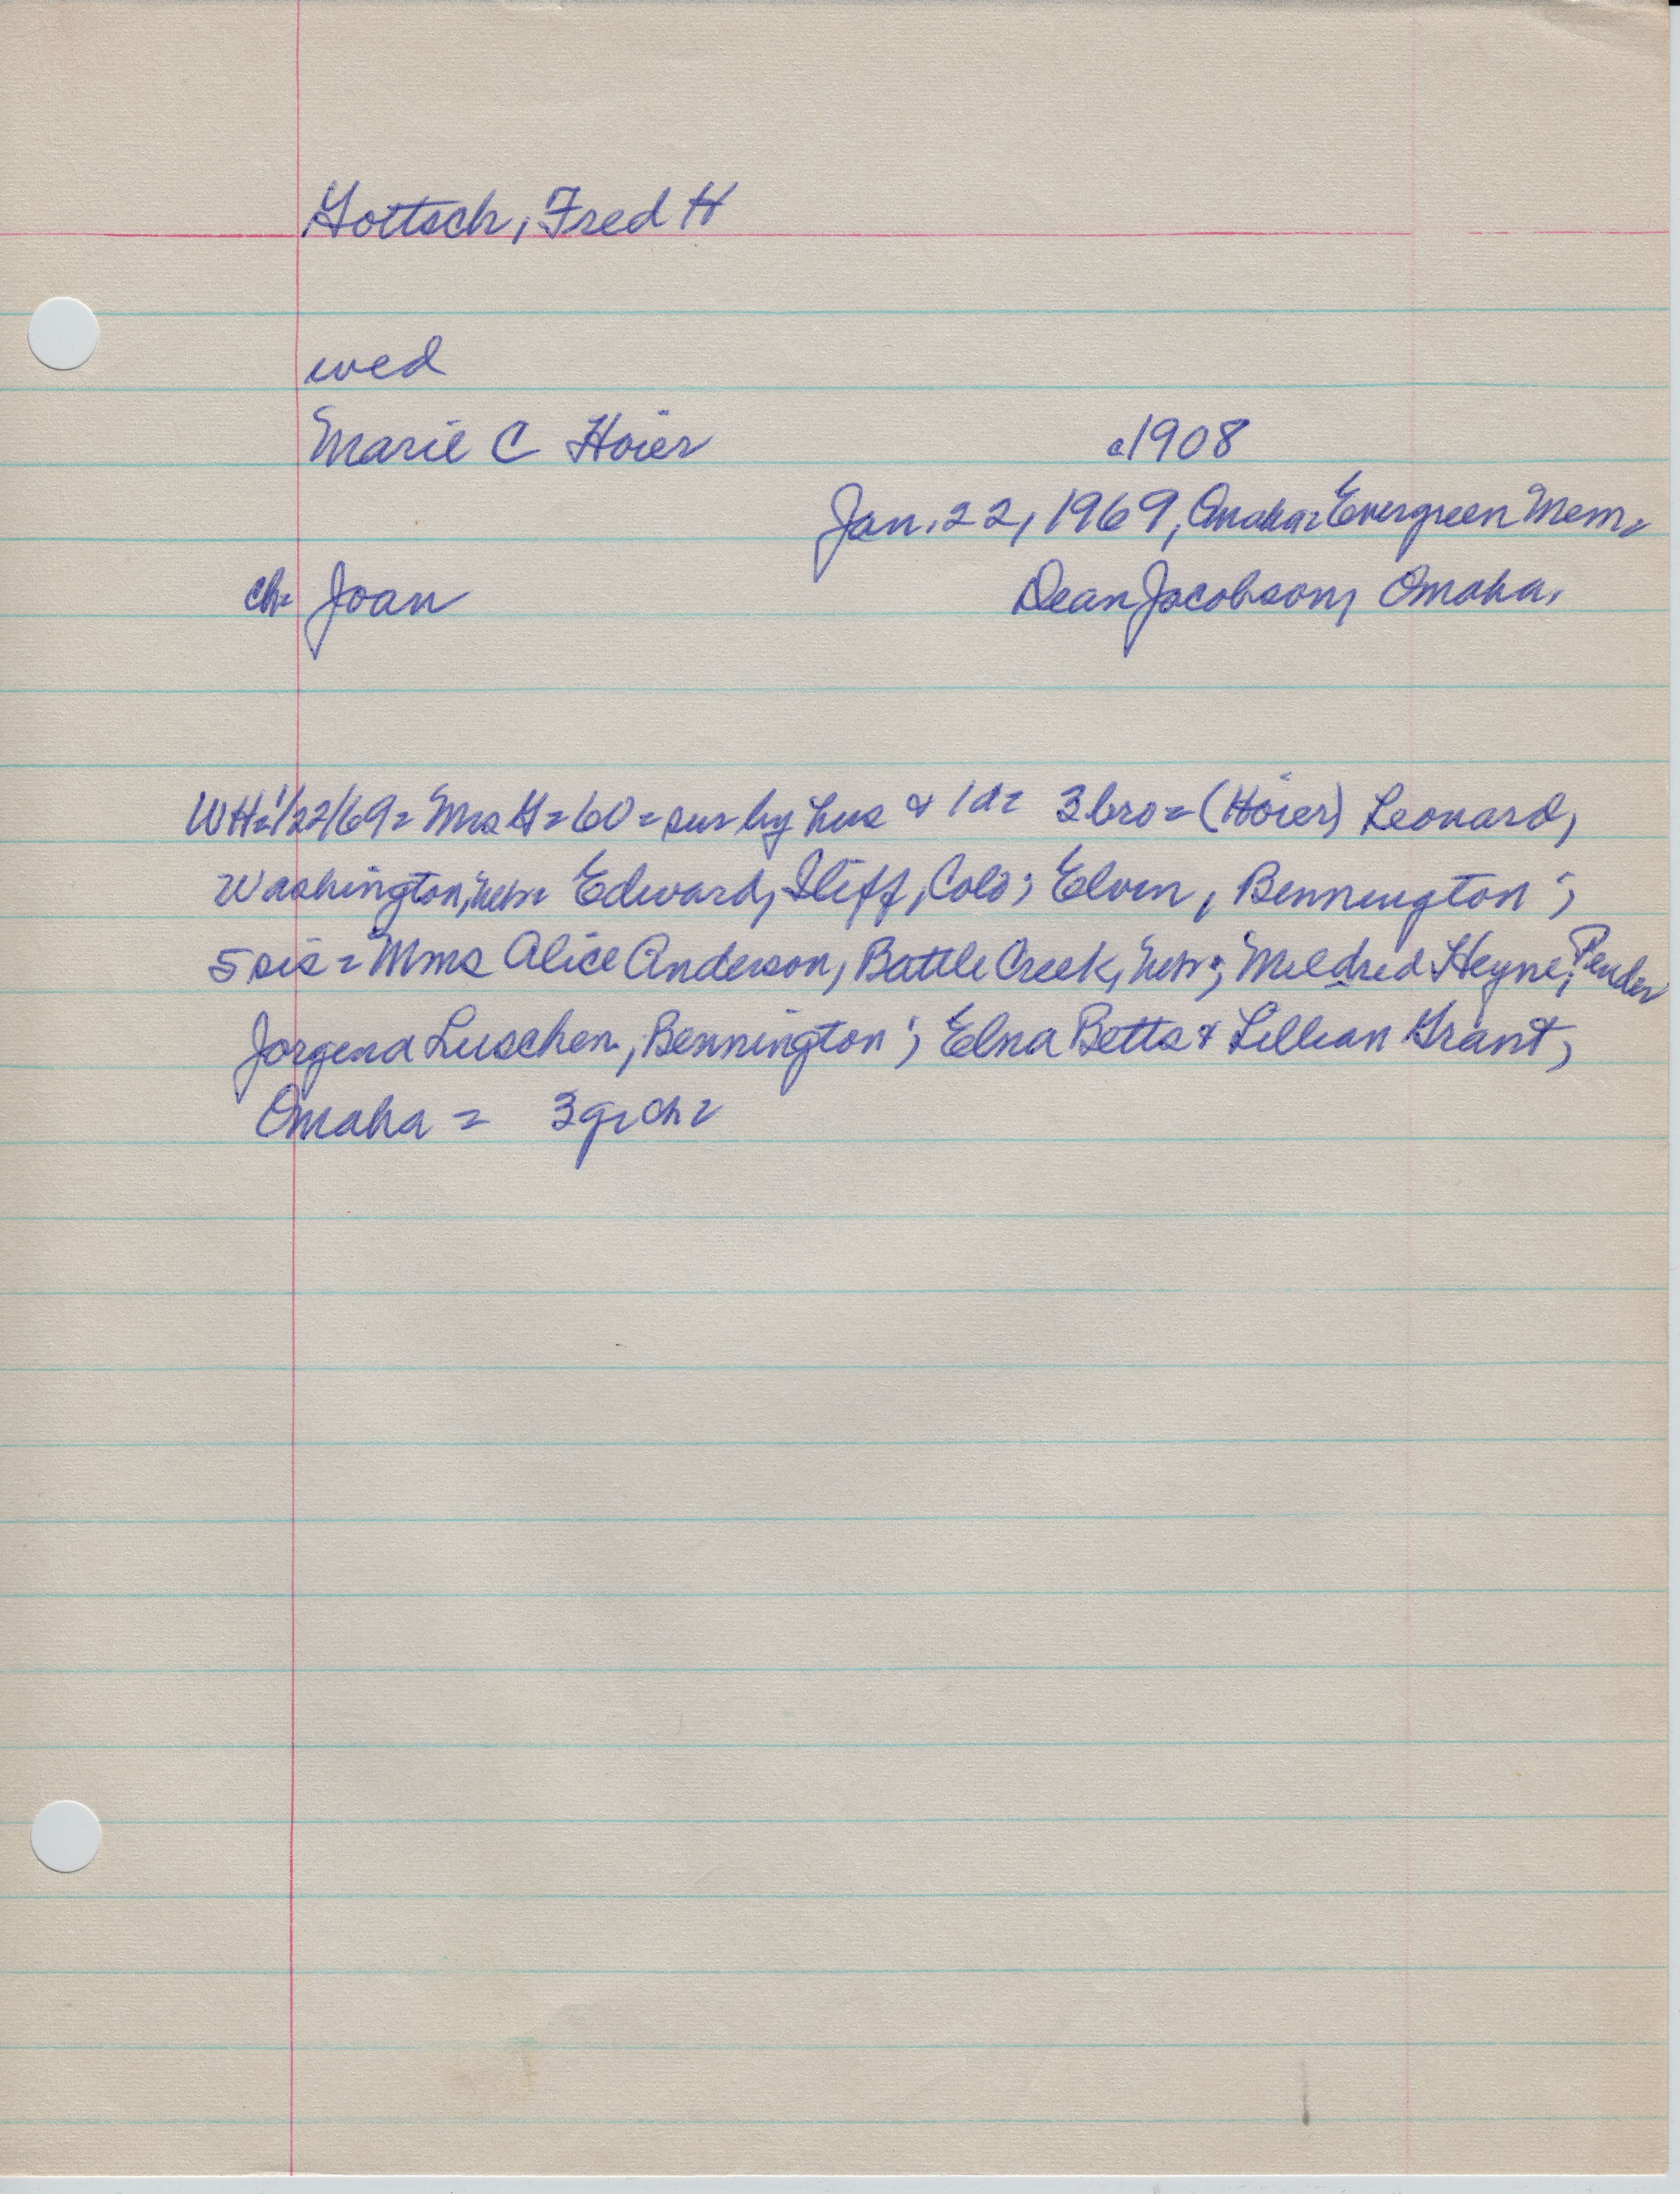 Gottsch, Fred H
wed
Marie C Hoier c1908
Jan. 22, 1969, Omaha= Evergreen Mem=
ch= Joan Dean Jacobson, Omaha.
WH=1/22/69= Mrs G=60=sur by hus & 1d= 3bro=(Hoier) Leonard,
Washington, Neb= Edward, Iliff, Colo; Elven, Bennington;
5 sis= Mms Alice Anderson, Battle Creek, Neb; Mildred Heyne, Pender
Jorgena Luschen, Bennington; Elna Betts & Lillian Grant,
Omaha= 3gr ch=